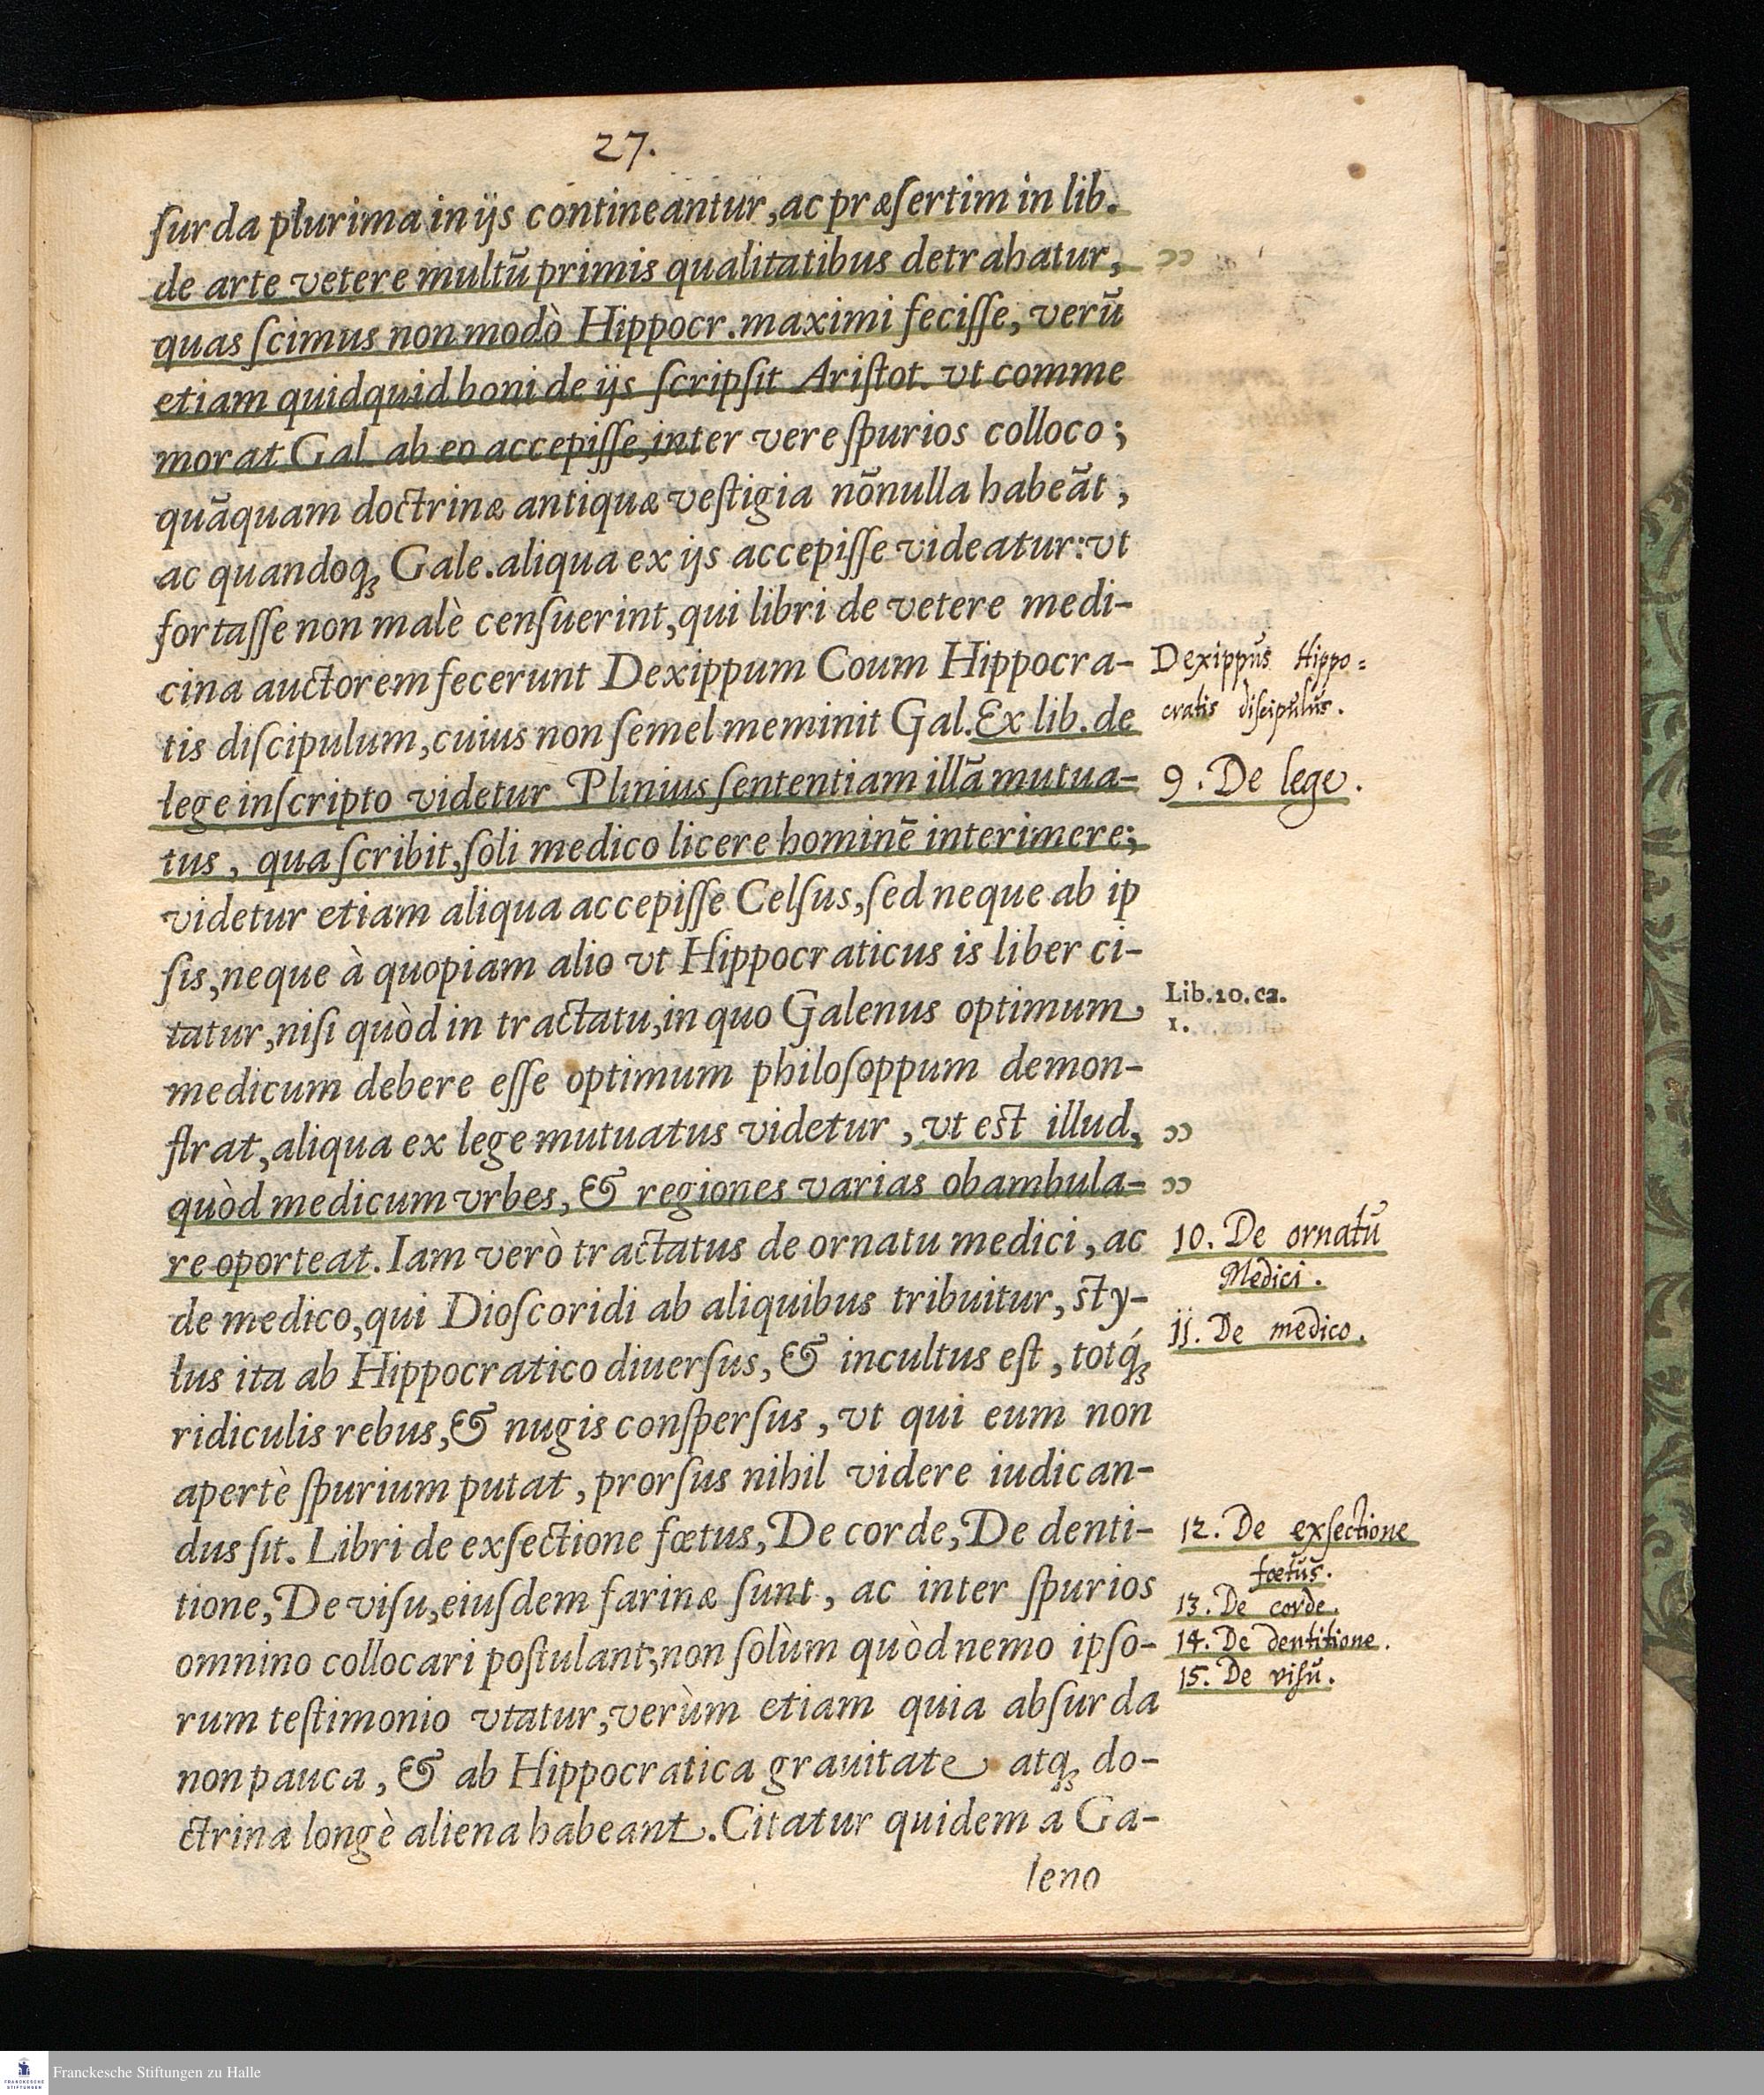 27.
ſurda plurima in ijs contineantur, ac præſertim in lib.
de arte vetere multũ primis qualitatibus detrahatur,
quas ſcimus non modò Hippocr. maximi feciſſe, verũ
etiam quidquid boni de ijs ſcripſit Ariſtot. vt comme
morat Gal. ab eo accepiſſe, inter vere ſpurios colloco;
quãquam doctrinæ antiquæ veſtigia nõnulla habeãt,
ac quandoq; Gale. aliqua ex ijs accepiſſe videatur: vt
fortaſſe non malè cenſuerint, qui libri de vetere medi-
cina auctorem fecerunt Dexippum Coum Hippocra-
tis diſcipulum, cuius non ſemel meminit Gal. Ex lib. de
lege inſcripto videtur Plinius ſententiam illã mutua-
tus, qua ſcribit, ſoli medico licere hominẽ interimere;
videtur etiam aliqua accepiſſe Celſus, ſed neque ab ip
ſis, neque à quopiam alio vt Hippocraticus is liber ci-
tatur, niſi quòd in tractatu, in quo Galenus optimum
medicum debere eſſe optimum philoſoppum demon-
ſtrat, aliqua ex lege mutuatus videtur, vt est illud,
quòd medicum vrbes, & regiones varias obambula-
re oporteat. Iam verò tractatus de ornatu medici, ac
de medico, qui Dioſcoridi ab aliquibus tribuitur, sty-
lus ita ab Hippocratico diuerſus, & incultus eſt, totq́;
ridiculis rebus, & nugis conſperſus, vt qui eum non
apertè ſpurium putat, prorſus nihil videre iudican-
dus ſit. Libri de exſectione fœtus, De corde, De denti-
tione, De viſu, eiuſdem farinæ ſunt, ac inter ſpurios
omnino collocari poſtulant; non ſolùm quòd nemo ipſo-
rum teſtimonio vtatur, verùm etiam quia abſurda
non pauca, & ab Hippocratica grauitate atq; do-
ctrina longè aliena habeant. Citatur quidem a Ga-
leno
Dexippus Hippo=
cratis diſcipulus.
9. De lege.
Lib. 10. ca.
1.
10. De ornatu
Medici.
11. De medico.
12. De exſectione
fœtus.
13. De corde.
14. De dentitione.
15. De viſu.
Franckesche Stiftungen zu Halle
FRANCKESCHE
STIFTUNGEN